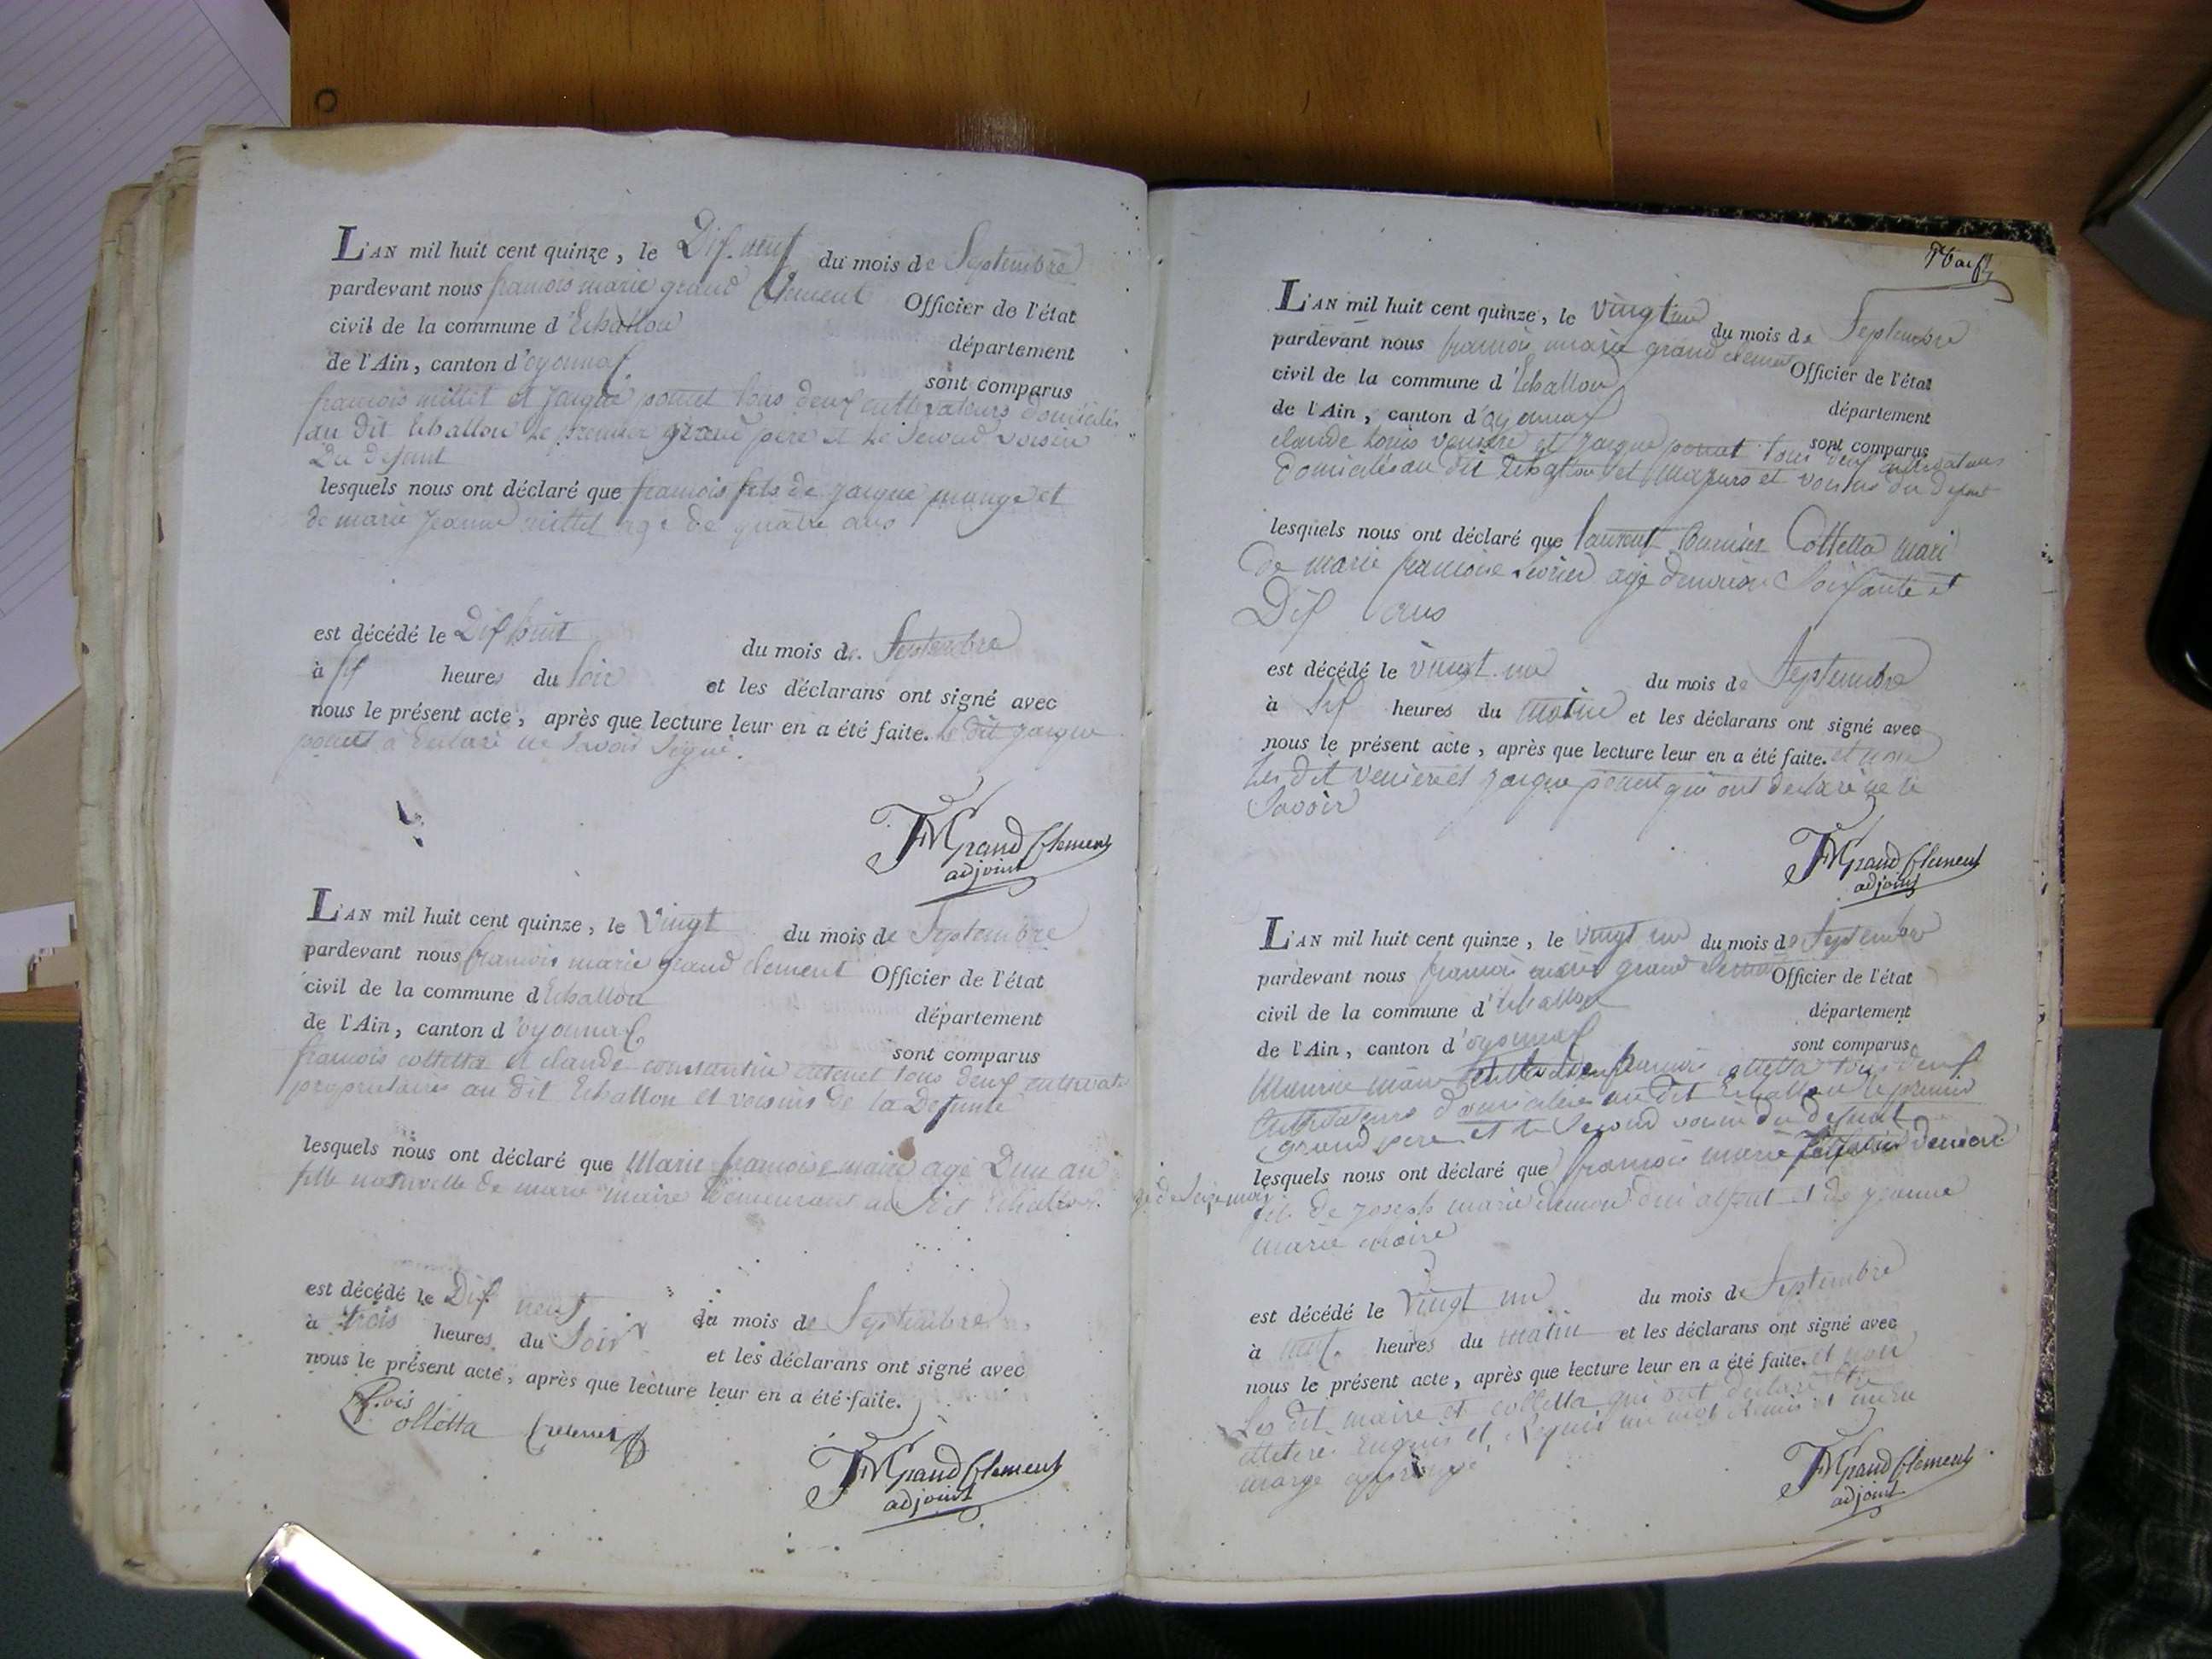 L'AN mil huit cent quinze, le Dix neuf du mois de Septembre
pardevant nous francois marie grand Clement Officier de l'état
civil de la commune d'Echallon département
de l'Ain, canton d'oyonnax sont comparus
francois millet et jacque ponut tous deux cultivateurs domicilés
au dit Echallon le premier grand pere et le second voisin
Du defunt
lesquels nous ont déclaré que francois fils de jacque et
de marie jeanne millet agé de quatre ans
est décédé le Dix huit du mois de Septembre
à heures du Soir et les déclarans ont signé avec
nous le présent acte, après que lecture leur en a été faite. le dit jacque
ponut à declaré ne savoir signé.
FMGrand Clement
adjoint
L'AN mil huit cent quinze, le Vingt du mois de Septembre
pardevant nous francois marie grand clement Officier de l'état
civil de la commune d Echallon département
de l'Ain, canton d'oyonnax sont comparus
francois colletta et claude constantin tous deux
proprietaires au dit Echallon et voisins de la Defunte
lesquels nous ont déclaré que Marie francoise maire agé Dun an
fille naturelle de marie maire demeurant au dit Echallon.
est décédé le Dix neuf du mois de Septembre
à trois heures du Soir et les déclarans ont signé avec
nous le présent acte, après que lecture leur en a été faite.
Colletta
FMGrand Clement
adjoint
L'AN mil huit cent quinze, le vingt un du mois de Septembre
pardevant nous francois marie grand clement Officier de l'état
civil de la commune d'Echallon département
de l'Ain, canton d'oyonnax sont comparus
claude louis et jacque ponut tous deux cultivateurs
domicilés au dit Echallon et majeurs et voisins du defunt
lesquels nous ont déclaré que laurent Colletta mari
de marie francoise agé denviron Soixante et
Dix ans
est décédé le vingt un du mois de Septembre
à Six heures du matin et les déclarans ont signé avec
nous le présent acte, après que lecture leur en a été faite. et non
les dit et jacque ponut qui ont declaré ne le
Savoir
FMGrand Clement
adjoint
L'AN mil huit cent quinze, le vingt un du mois de Septembre
pardevant nous francois marie grand clement Officier de l'état
civil de la commune d'Echallon département
de l'Ain, canton d'oyonnax sont comparus
Maurice maire francois colletta tous deux
Cultivateurs domicilés au dit Echallon le premier
grand pere et le Second voisin du defunt
lesquels nous ont déclaré que francois marie
fils de joseph marie et de jeanne
marie maire
est décédé le vingt un du mois de Septembre
à heures du matin et les déclarans ont signé avec
nous le présent acte, après que lecture leur en a été faite. et non
les dit maire et colletta qui ont declaré
et un mot
marge
FMGrand Clement
adjoint